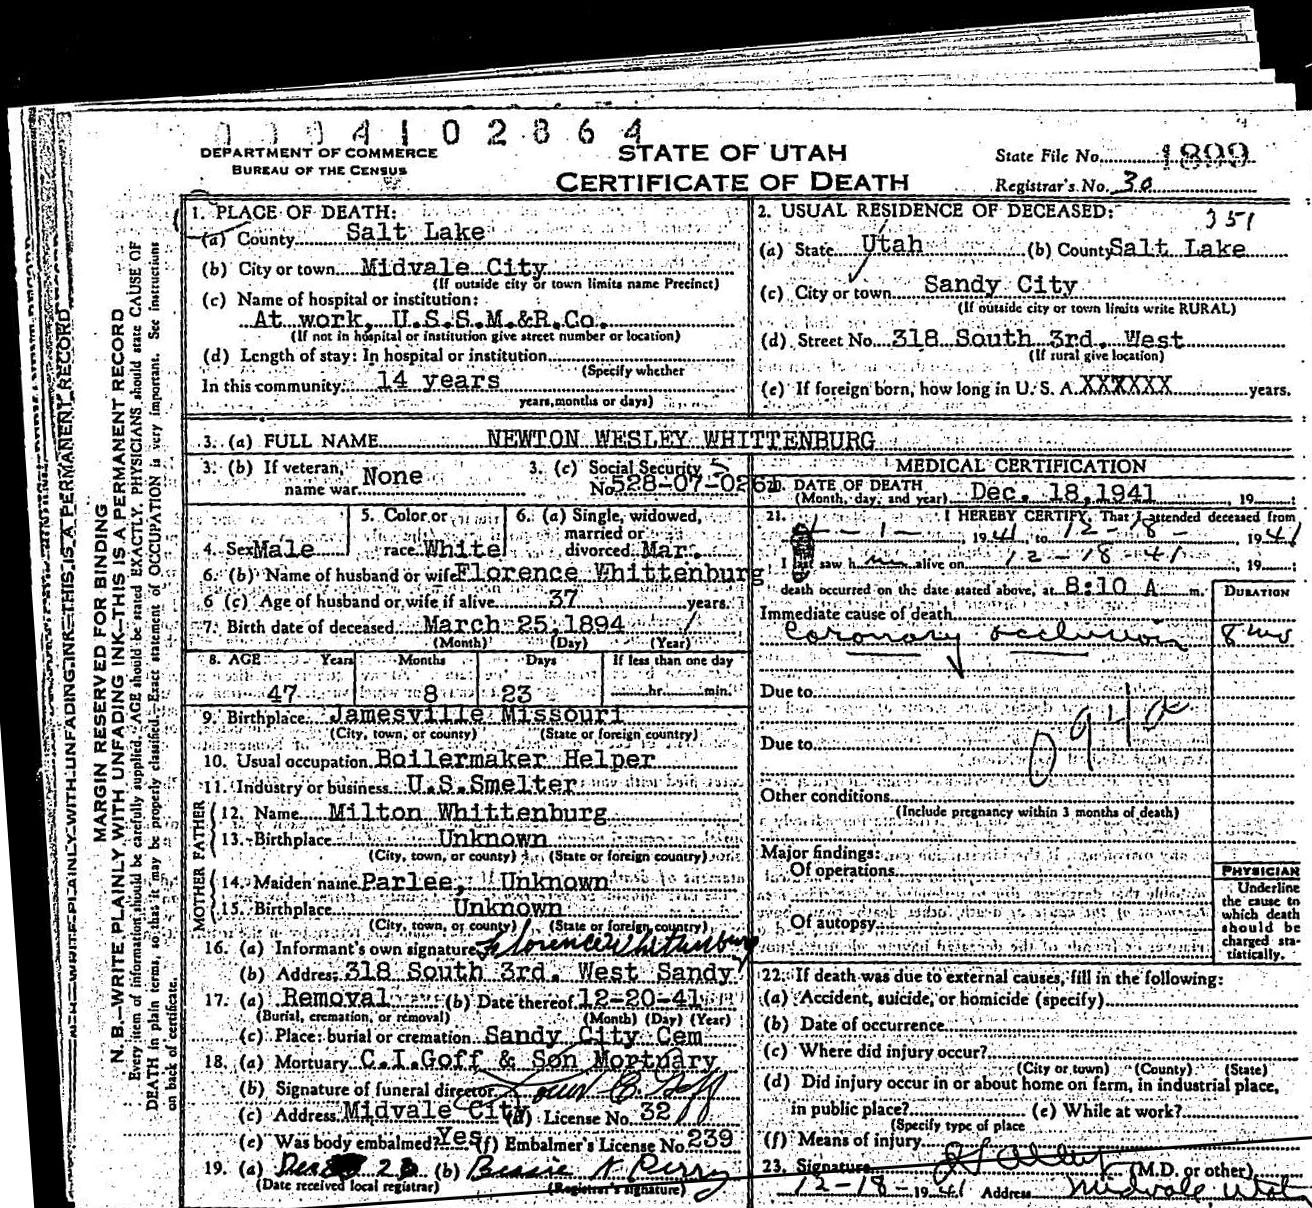 0004102864
DEPARTMENT OF COMMERCE
BUREAU OF THE CENSUS
STATE OF UTAH
CERTIFICATE OF DEATH
State File No. 1899
Registrar's No. 30
1. PLACE OF DEATH:
(a) County Salt Lake
(b) City or town Midvale City
(If outside city or town limits name Precinct)
(c) Name of hospital or institution:
At work, U.S.S.M.&R.Co.
(If not in hospital or institution give street number or location)
(d) Length of stay: In hospital or institution
(Specify whether
In this community: 14 years
years, months or days)
2. USUAL RESIDENCE OF DECEASED: 351
(a) State Utah (b) County Salt Lake
(c) City or town Sandy City
(If outside city or town limits write RURAL)
(d) Street No. 318 South 3rd. West
(If rural give location)
(e) If foreign born, how long in U. S. A. XXXXXX years.
3. (a) FULL NAME NEWTON WESLEY WHITTENBURG
3. (b) If veteran, name war None
3. (c) Social Security No. 528-07-0261
4. Sex Male
5. Color or race White
6. (a) Single, widowed, married or divorced Mar.
6. (b) Name of husband or wife Florence Whittenburg
6 (c) Age of husband or wife if alive 37 years.
7. Birth date of deceased March 25, 1894
(Month) (Day) (Year)
8. AGE Years Months Days If less than one day
47 8 23 hr. min.
9. Birthplace Jamesville Missouri
(City, town, or county) (State or foreign country)
10. Usual occupation Boilermaker Helper
11. Industry or business U.S.Smelter
FATHER
12. Name Milton Whittenburg
13. Birthplace Unknown
(City, town, or county) (State or foreign country)
MOTHER
14. Maiden name Parlee, Unknown
15. Birthplace Unknown
(City, town, or county) (State or foreign country)
16. (a) Informant's own signature Florence Whittenburg
(b) Address 318 South 3rd. West Sandy
17. (a) Removal (b) Date thereof 12-20-41
(Burial, cremation, or removal) (Month) (Day) (Year)
(c) Place: burial or cremation Sandy City Cem
18. (a) Mortuary C.I.Goff & Son Mortuary
(b) Signature of funeral director Goff
(c) Address Midvale City (d) License No. 32
(e) Was body embalmed? Yes (f) Embalmer's License No. 239
19. (a) Dec 23 (b) Bessie N. Perry
(Date received local registrar) (Registrar's signature)
MEDICAL CERTIFICATION
20. DATE OF DEATH
(Month, day, and year) Dec. 18, 1941 19
21. I HEREBY CERTIFY, That I attended deceased from
1-1- 1941, to 12-18- 1941
I last saw him alive on 12-18-41, 19
death occurred on the date stated above, at 8:10 A m.
DURATION
Immediate cause of death
Coronary occlusion 8 mos
Due to
094a
Due to
Other conditions
(Include pregnancy within 3 months of death)
Major findings:
Of operations
Of autopsy
PHYSICIAN
Underline
the cause to
which death
should be
charged sta-
tistically.
22. If death was due to external causes, fill in the following:
(a) Accident, suicide, or homicide (specify)
(b) Date of occurrence
(c) Where did injury occur?
(City or town) (County) (State)
(d) Did injury occur in or about home on farm, in industrial place,
in public place? (e) While at work?
(Specify type of place
(f) Means of injury
23. Signature (M.D. or other)
12-18-1941 Address Midvale Utah
MARGIN RESERVED FOR BINDING
N. B.—WRITE PLAINLY WITH UNFADING INK—THIS IS A PERMANENT RECORD
Every item of information should be carefully supplied. AGE should be stated EXACTLY. PHYSICIANS should state CAUSE OF
DEATH in plain terms, so that it may be properly classified. Exact statement of OCCUPATION is very important. See instructions
on back of certificate.